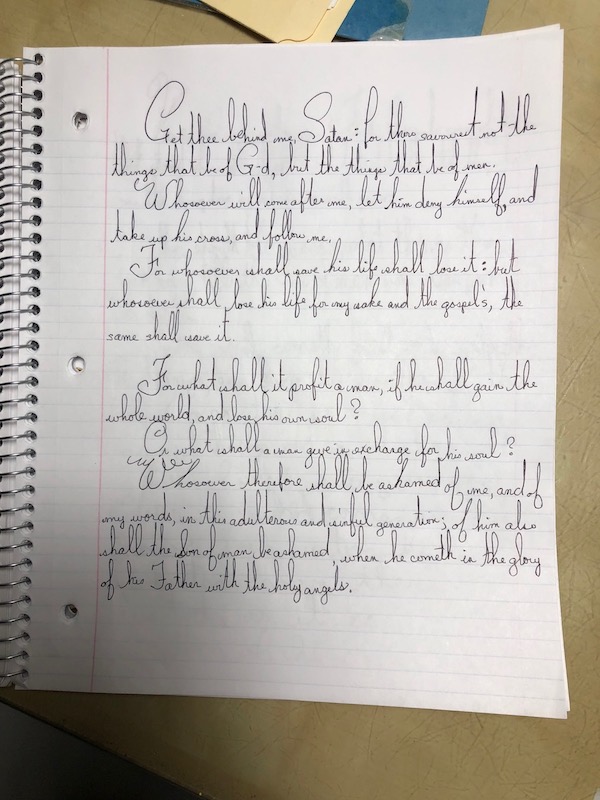 Get thee behind me, Satan: for thou savourest not the
things that be of G-d, but the things that be of men.
Whosoever will come after me, let him deny himself, and
take up his cross, and follow me.
For whosoever shall save his life shall lose it: but
whosoever shall lose his life for my sake and the gospel's, the
same shall save it.
For what shall it profit a man, if he shall gain the
whole world, and lose his own soul?
Or what shall a man give in exchange for his soul?
Whosoever therefore shall be ashamed of me, and of
my words, in this adulterous and sinful generation; of him also
shall the Son of man be ashamed, when he cometh in the glory
of his Father with the holy angels.